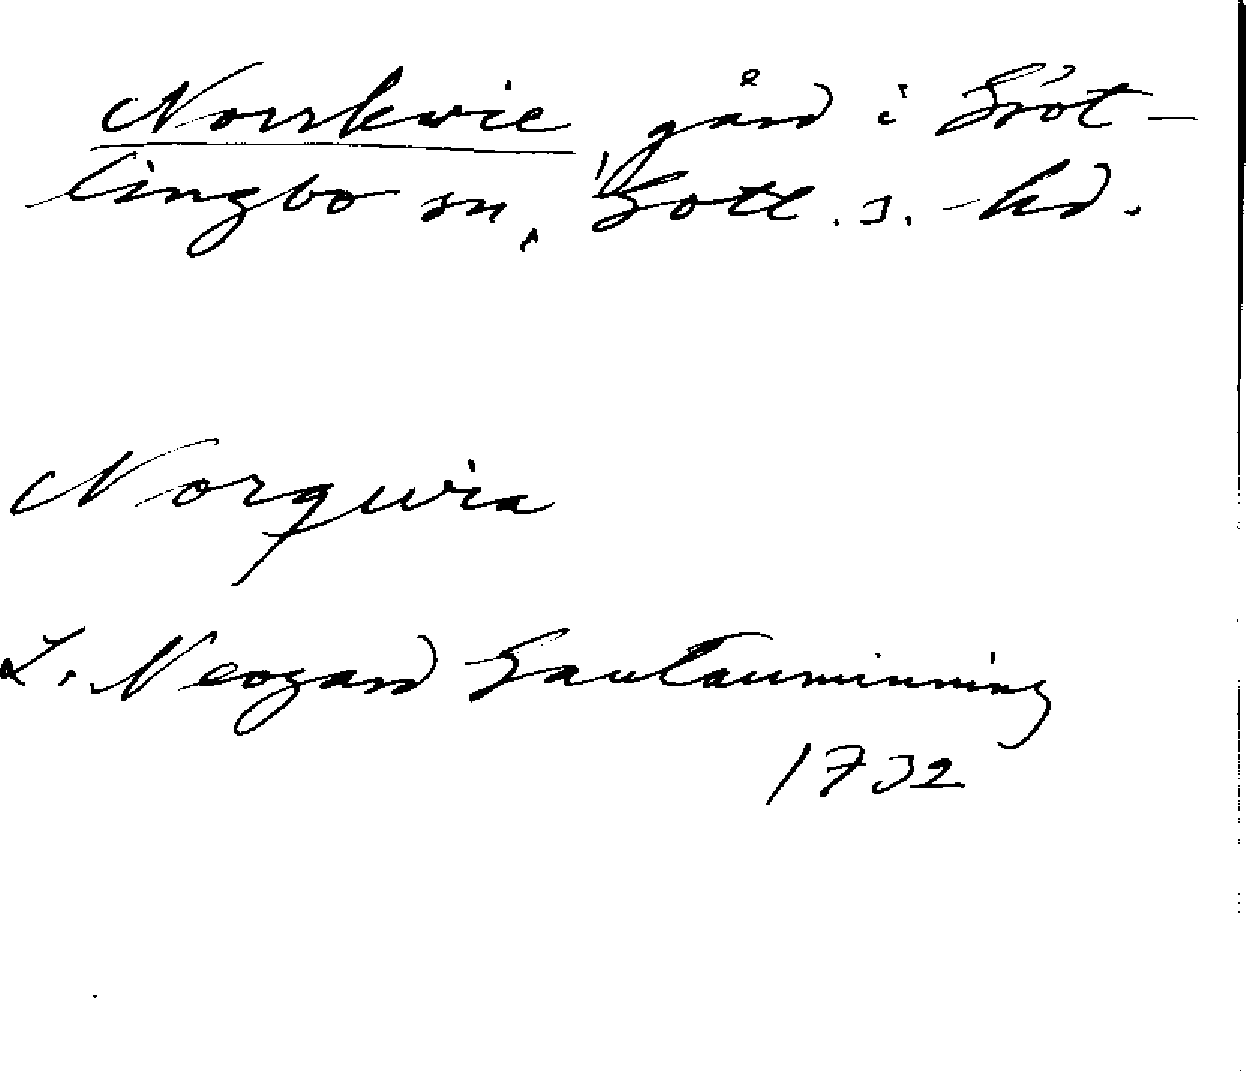 Norrkvie, gård i Gröt-
lingbo sn, Gotl. s. hd.
Norquia
L. Neogard Gautauminning
1732